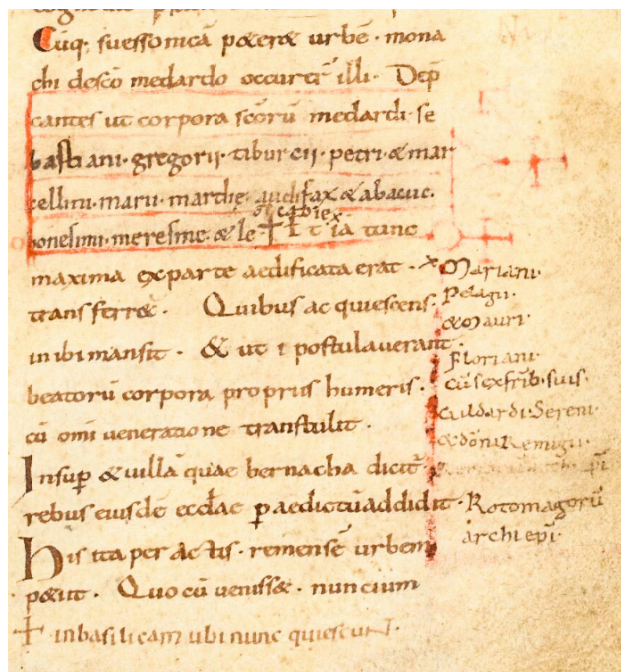 Cūq; suessonicā p&er& urbē · mona
chi desc̄o medardo occurr̄t illi · Dep̄
cantes ut corpora sc̄orū medardi · se
bastiani · gregorii · tiburcii · petri · & mar
cellini · marii · marthe · audifax & abacuc ·
honesimi · meresme · & le
tia tunc
maxima exparte aedificata erat ·
transferr& · Quibus ac quiescens ·
inibi mansit · & ut i postulaverant
beatorū corpora propriis humeris ·
cū omī veneratione transtulit ·
Insup̄ & villā quae bernacha dicit̄
rebus eiusdē eccl̄ae p̄aedictū addidit ·
His ita peractis · remensē urbem
p&iit · Quo cū veniss& · nuncium
☩ in basilicam ubi nunc quiescunt ·
Mariani ·
Pelagii ·
& Mauri ·
Floriani ·
cū sex fr̄ib · suis ·
Gildardi · Sereni ·
& dōni Remigii ·
Rotomagorū
archiep̄i ·